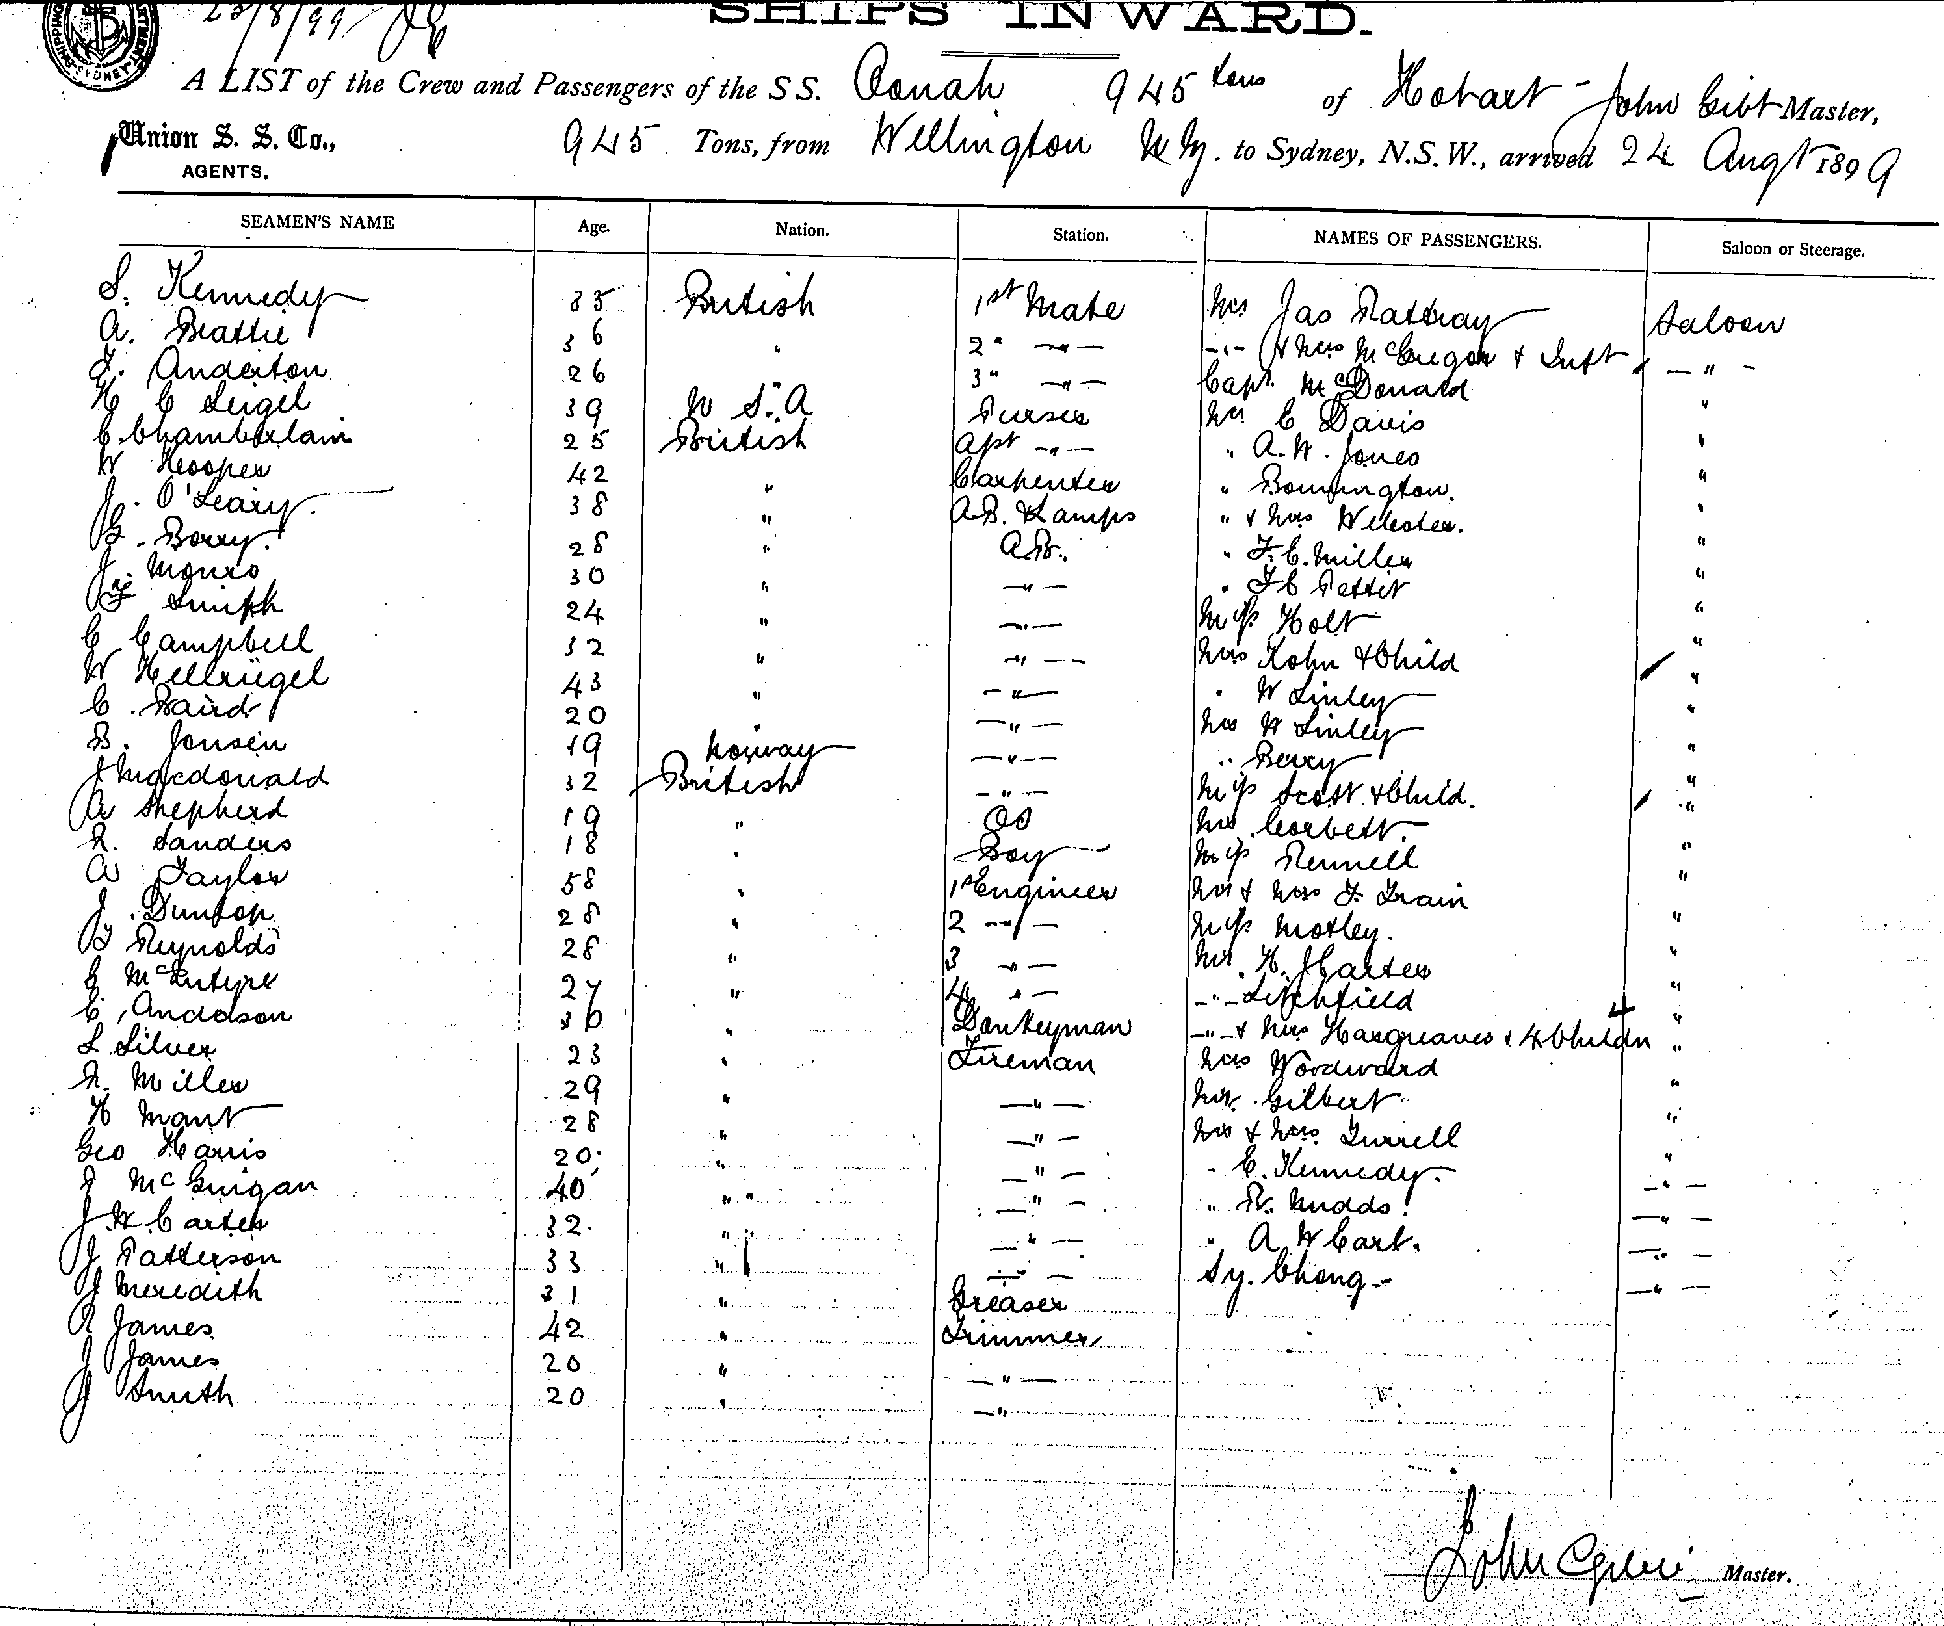 23/8/99
SHIPS INWARD.
A LIST of the Crew and Passengers of the SS. Oonah 945 tons of Hobart - John Gibb Master,
Union S. S. Co., 945 Tons, from Wellington N.Z. to Sydney, N.S.W., arrived 24 Augt 1899
AGENTS.
SEAMEN'S NAME Age. Nation. Station. NAMES OF PASSENGERS. Saloon or Steerage.
S. Kennedy 35 British 1st Mate Mr Jas Rattray Saloon
A. Beattie 36 " 2" -"- -"- & Mrs McGregor & Inft -"-
F. Anderton 26 " 3" -"- Capt. McDonald "
H C Seigel 39 U S. A Purser Mr C Davis "
C. Chamberlain 25 British Apt -"- " A. W. Jones "
W Hooper 42 " Carpenter " Bonnington. "
J. O'Leary 38 " A.B. & Lamps " & Mrs Webster. "
G. Berry. 28 " A.B. " F. C. Miller "
J. Monro 30 " -"- " F C Pettit "
F Smith 24 " -"- Miss Holt "
C Campbell 32 " -"- Mrs Kohn & Child "
W Hellriegel 43 " -"- " W Linley "
C. Baird 20 " -"- Mrs W Linley "
B. Jonsen 19 Norway -"- " Berry "
J Macdonald 32 British -"- Miss Scott & Child. "
A Shepherd 19 " OS Mr Corbett. "
R. Sanders 18 " Boy Miss Rennell "
A Taylor 58 " 1st Engineer Mr & Mrs F. Train "
J. Dunlop 28 " 2 -"- Miss Motley. "
F Reynolds 28 " 3 -"- Mr. H. J Carter "
G McIntyre 27 " 4 "- -"- Litchfield "
C. Anderson 36 " Donkeyman -"- & Mrs Hargreaves & 4 Childn "
L. Silver 23 " Fireman Mrs Woodward "
R. Miller 29 " -"- Mr. Gilbert "
H Mant 28 " -"- Mr & Mrs. Turrell "
Geo Harris 20 " -"- " C. Kennedy. "
J McGuigan 40 " " -"- " R. Mudds. -"-
J. W. Carter 32. " -"- " A. W Cart. -"-
J Patterson 33 " -"- Sy. Chong. -"-
J Meredith 31 " Greaser -"-
R James 42 " Trimmer
J James 20 " -"-
J Smith 20 " -"-
John Gibb Master.